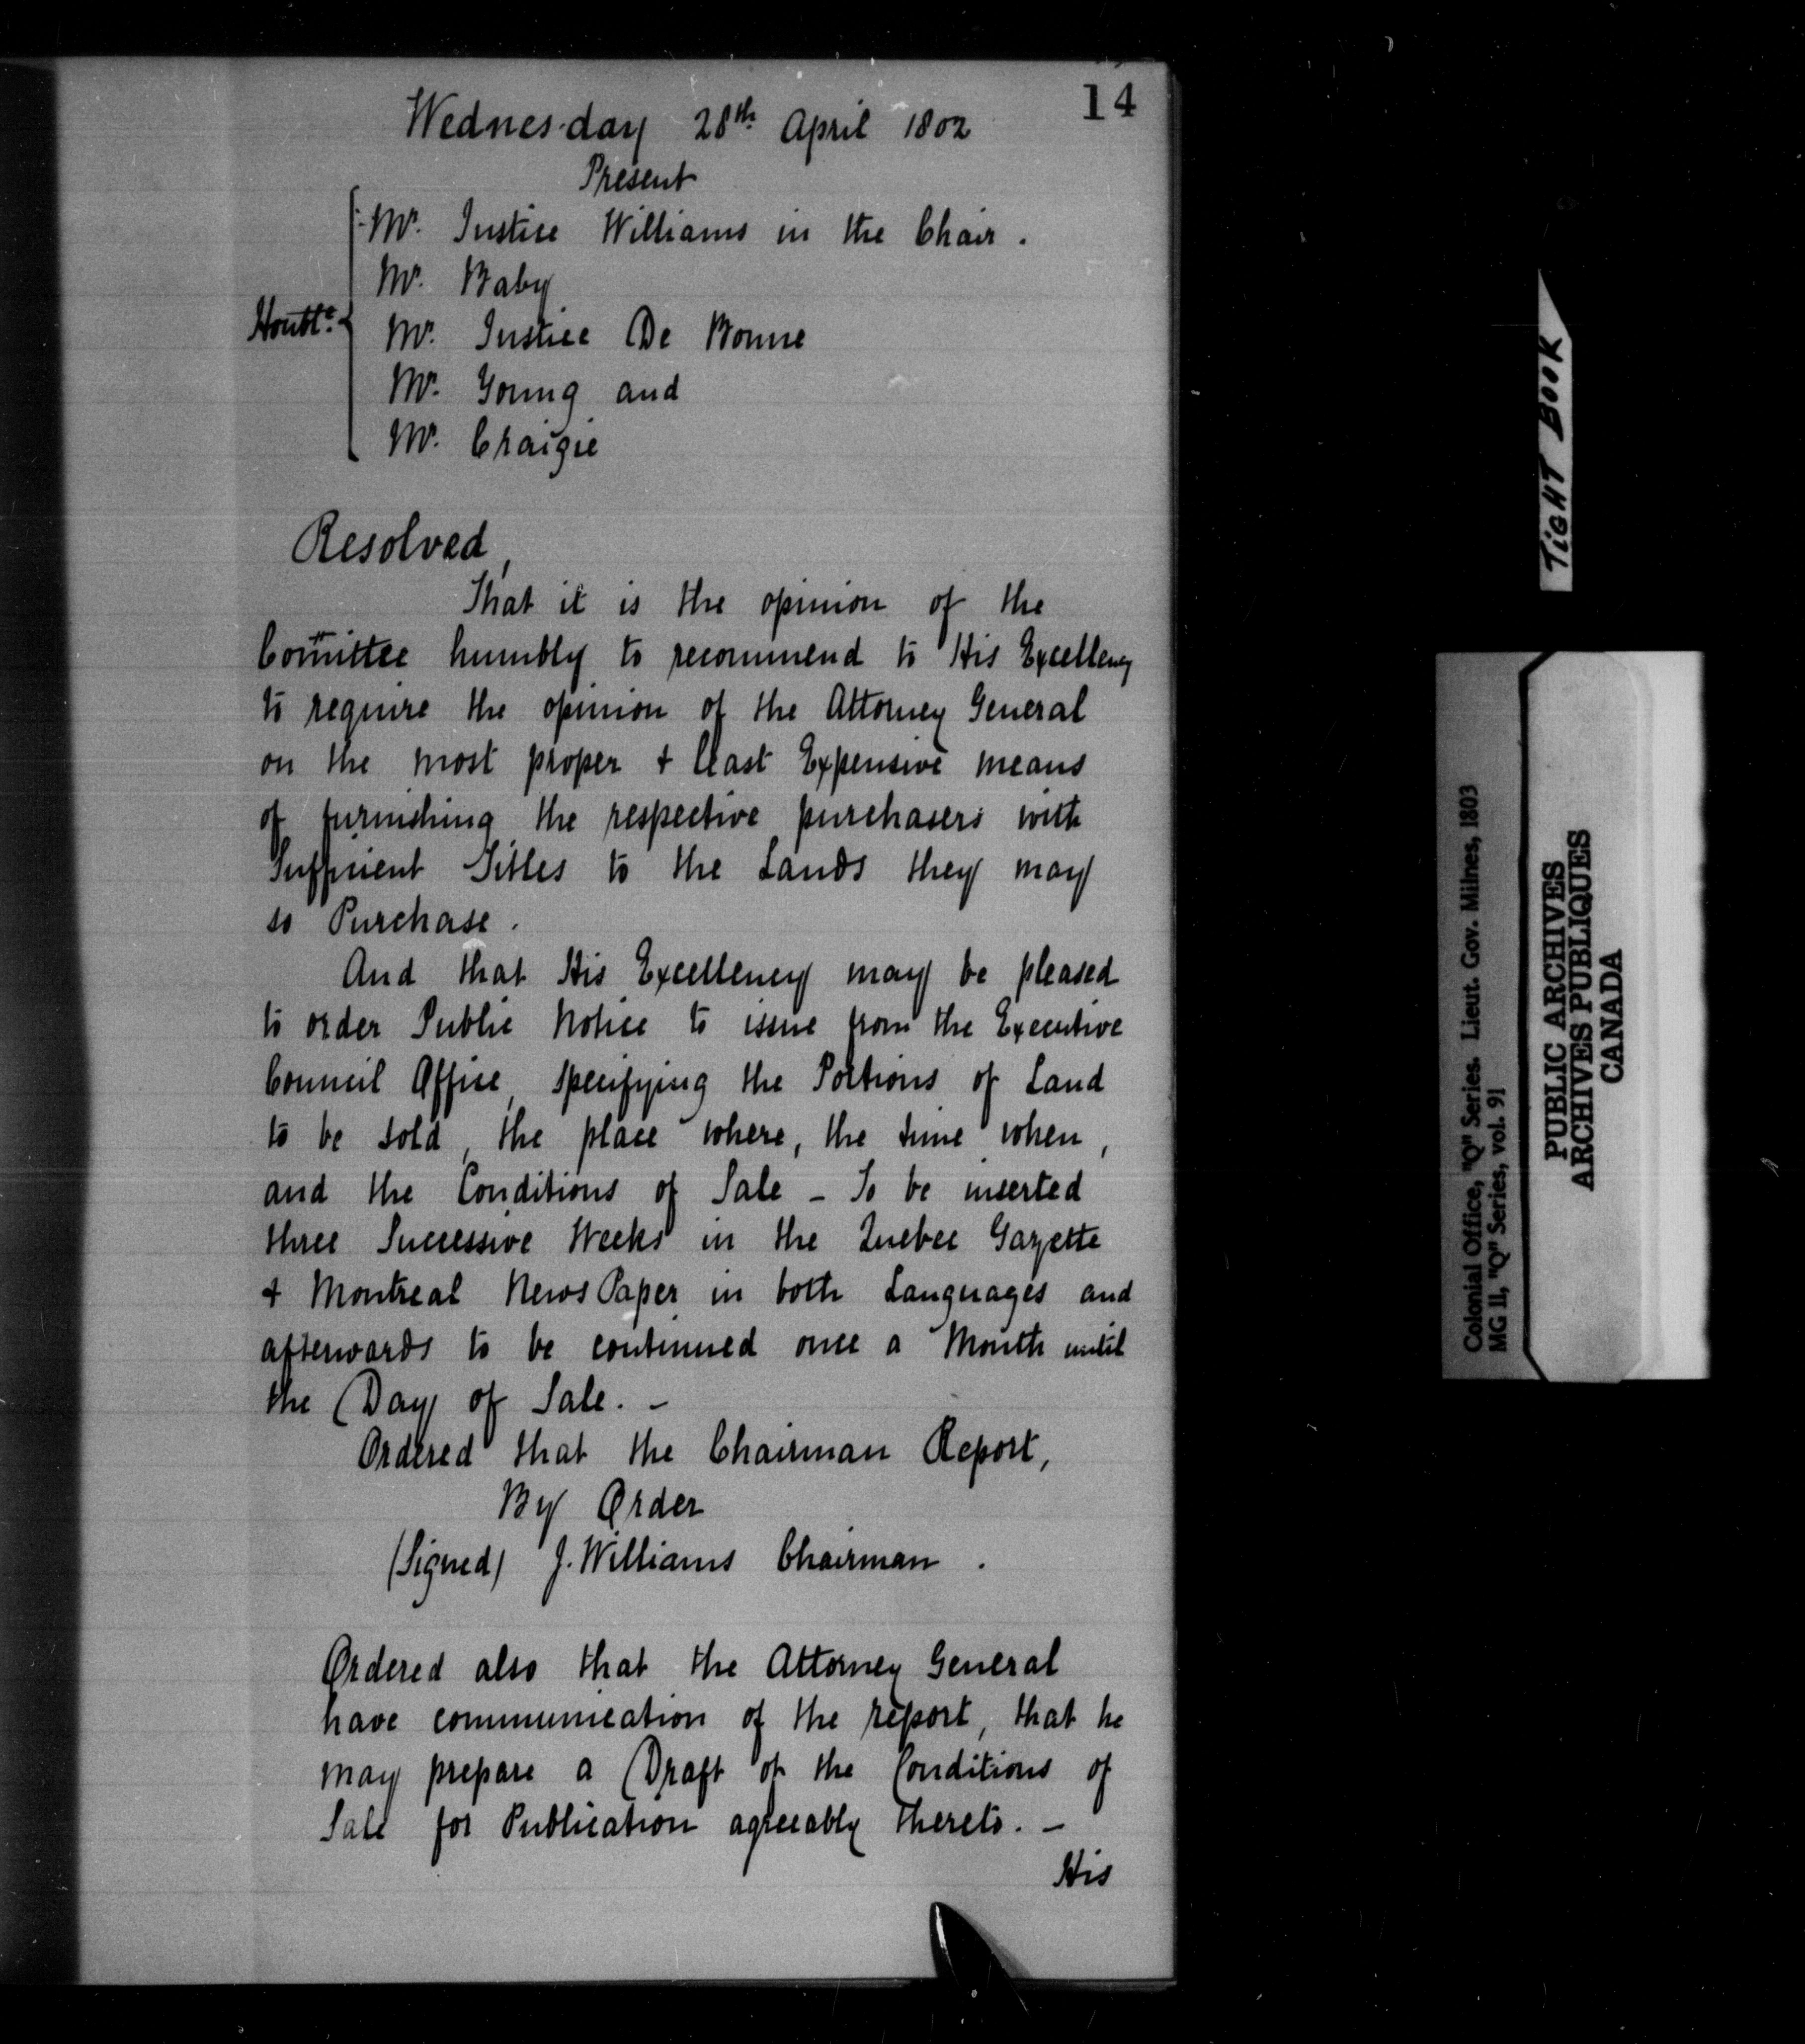 14
Wednesday 28th April 1802
Present
Mr. Justice Williams in the Chair.
Mr. Baby
Honble. Mr. Justice De Bonne
Mr. Young and
Mr. Craigie
Resolved,
That it is the opinion of the
Comittee humbly to recommend to His Excellency
to require the opinion of the Attorney General
on the most proper & least Expensive means
of furnishing the respective purchasers with
Sufficient Titles to the Lands they may
so Purchase.
And that His Excellency may be pleased
to order Public Notice to issue from the Executive
Council Office, specifying the Portions of Land
to be sold, the place where, the time when,
and the Conditions of Sale - To be inserted
three Successive Weeks in the Quebec Gazette
& Montreal News Paper in both Languages and
afterwards to be continued once a Month until
the Day of Sale. -
Ordered that the Chairman Report,
By Order
(Signed) J. Williams Chairman.
Ordered also that the Attorney General
have communication of the report, that he
may prepare a Draft of the Conditions of
Sale for Publication agreeably thereto. -
His
TIGHT BOOK
Colonial Office, "Q" Series. Lieut. Gov. Milnes, 1803
MG 11, "Q" Series, vol. 91
PUBLIC ARCHIVES
ARCHIVES PUBLIQUES
CANADA